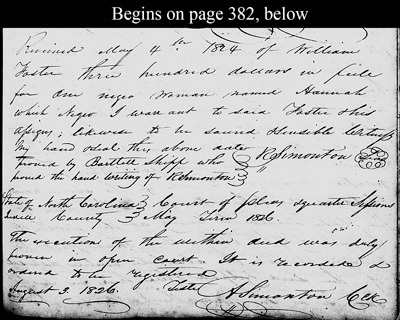 Begins on page 382, below
Received May 4th 1824 of William
Foster three hundred dollars in full
for one negro woman named Hannah
which Negro I warrant to said Foster & his
asigns; likewise to be sound & sensible Witness
my hand & seal this above date
proved by Bartlett Shipp who R Simonton
proved the hand writing of R Simonton
State of North Carolina Court of pleas & quarter Sessions
County May Term 1826
The execution of the within deed was duly
proven in open court. It is recorded &
ordered to be registered
August 3. 1826. Teste A Simonton Clk